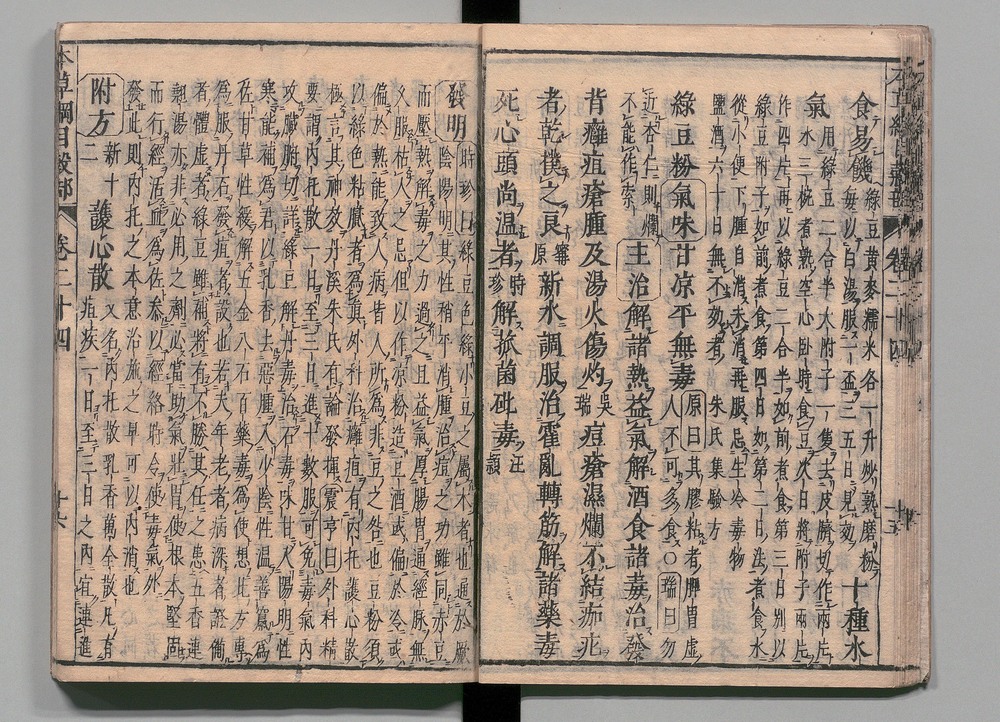 食易饑 綠豆黃麥糯米各一升炒熟磨粉
每以白湯服一盃三五日見效 十種水
氣 用綠豆二合半大附子一隻去皮臍切作兩片
水三椀煮熟空心臥時食豆次日將附子兩片
作四片再以綠豆二合半如前煮食第三日別以
綠豆附子如前煮食第四日如第二日法煮食水
從小便下腫自消未消再服忌生冷毒物
鹽酒六十日無不效者 朱氏集驗方
綠豆粉氣味甘凉平無毒 原曰其膠粘者脾胃虛
人不可多食○瑞曰勿
近杏仁則爛
不能作索 主治解諸熱益氣解酒食諸毒治發
背癰疽瘡腫及湯火傷灼 吳瑞 痘瘡濕爛不結痂疕
者乾撲之良 甯原 新水調服治霍亂轉筋解諸藥毒
死心頭尚温者 時珍 解菰菌砒毒 汪穎
發明 時珍曰綠豆色綠小豆之屬木者也通於厥
陰陽明其性稍平消腫治痘之功雖同赤豆
而壓熱解毒之力過之且益氣厚腸胃通經脉無
久服枯人之忌但以作凉粉造豆酒或偏於冷或
偏於熱能致人病皆人所爲非豆之咎也豆粉須
以綠色粘膩者爲眞外科治癰疽有内托護心散
極言其神效丹溪朱氏有論發揮震亨曰外科精
要謂内托散一日至三日進十數服可免毒氣内
攻臟腑切詳綠豆解丹毒治石毒味甘入陽明性
寒能補爲君以乳香去惡腫入少陰性温善竄爲
佐甘草性緩解五金八石百藥毒爲使想此方專
爲服丹石發疽者設也若夫年老者病深者證備
者體虛者綠豆雖補將有不勝其任之患五香連
翹湯亦非必用之劑必當助氣壯胃使根本堅固
而行經活血爲佐參以經絡時令使毒氣外
發此則内托之本意治施之早可以内消也
附方 新十二 護心散 又名内托散乳香萬全散凡有
疽疾一日至三日之内宜連進
本草綱目穀部 卷二十四 十六